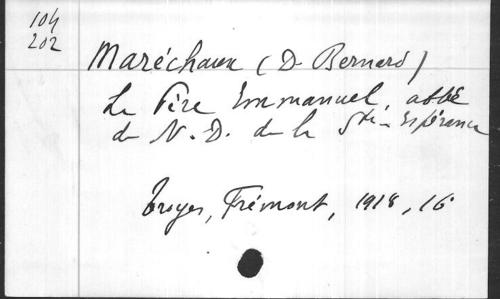 104
202
Maréchaux (D. Bernard)
Le Père Emmanuel, abbé
de N.-D. de la Ste-Espérance
Troyes, Frémont, 1918, 16°